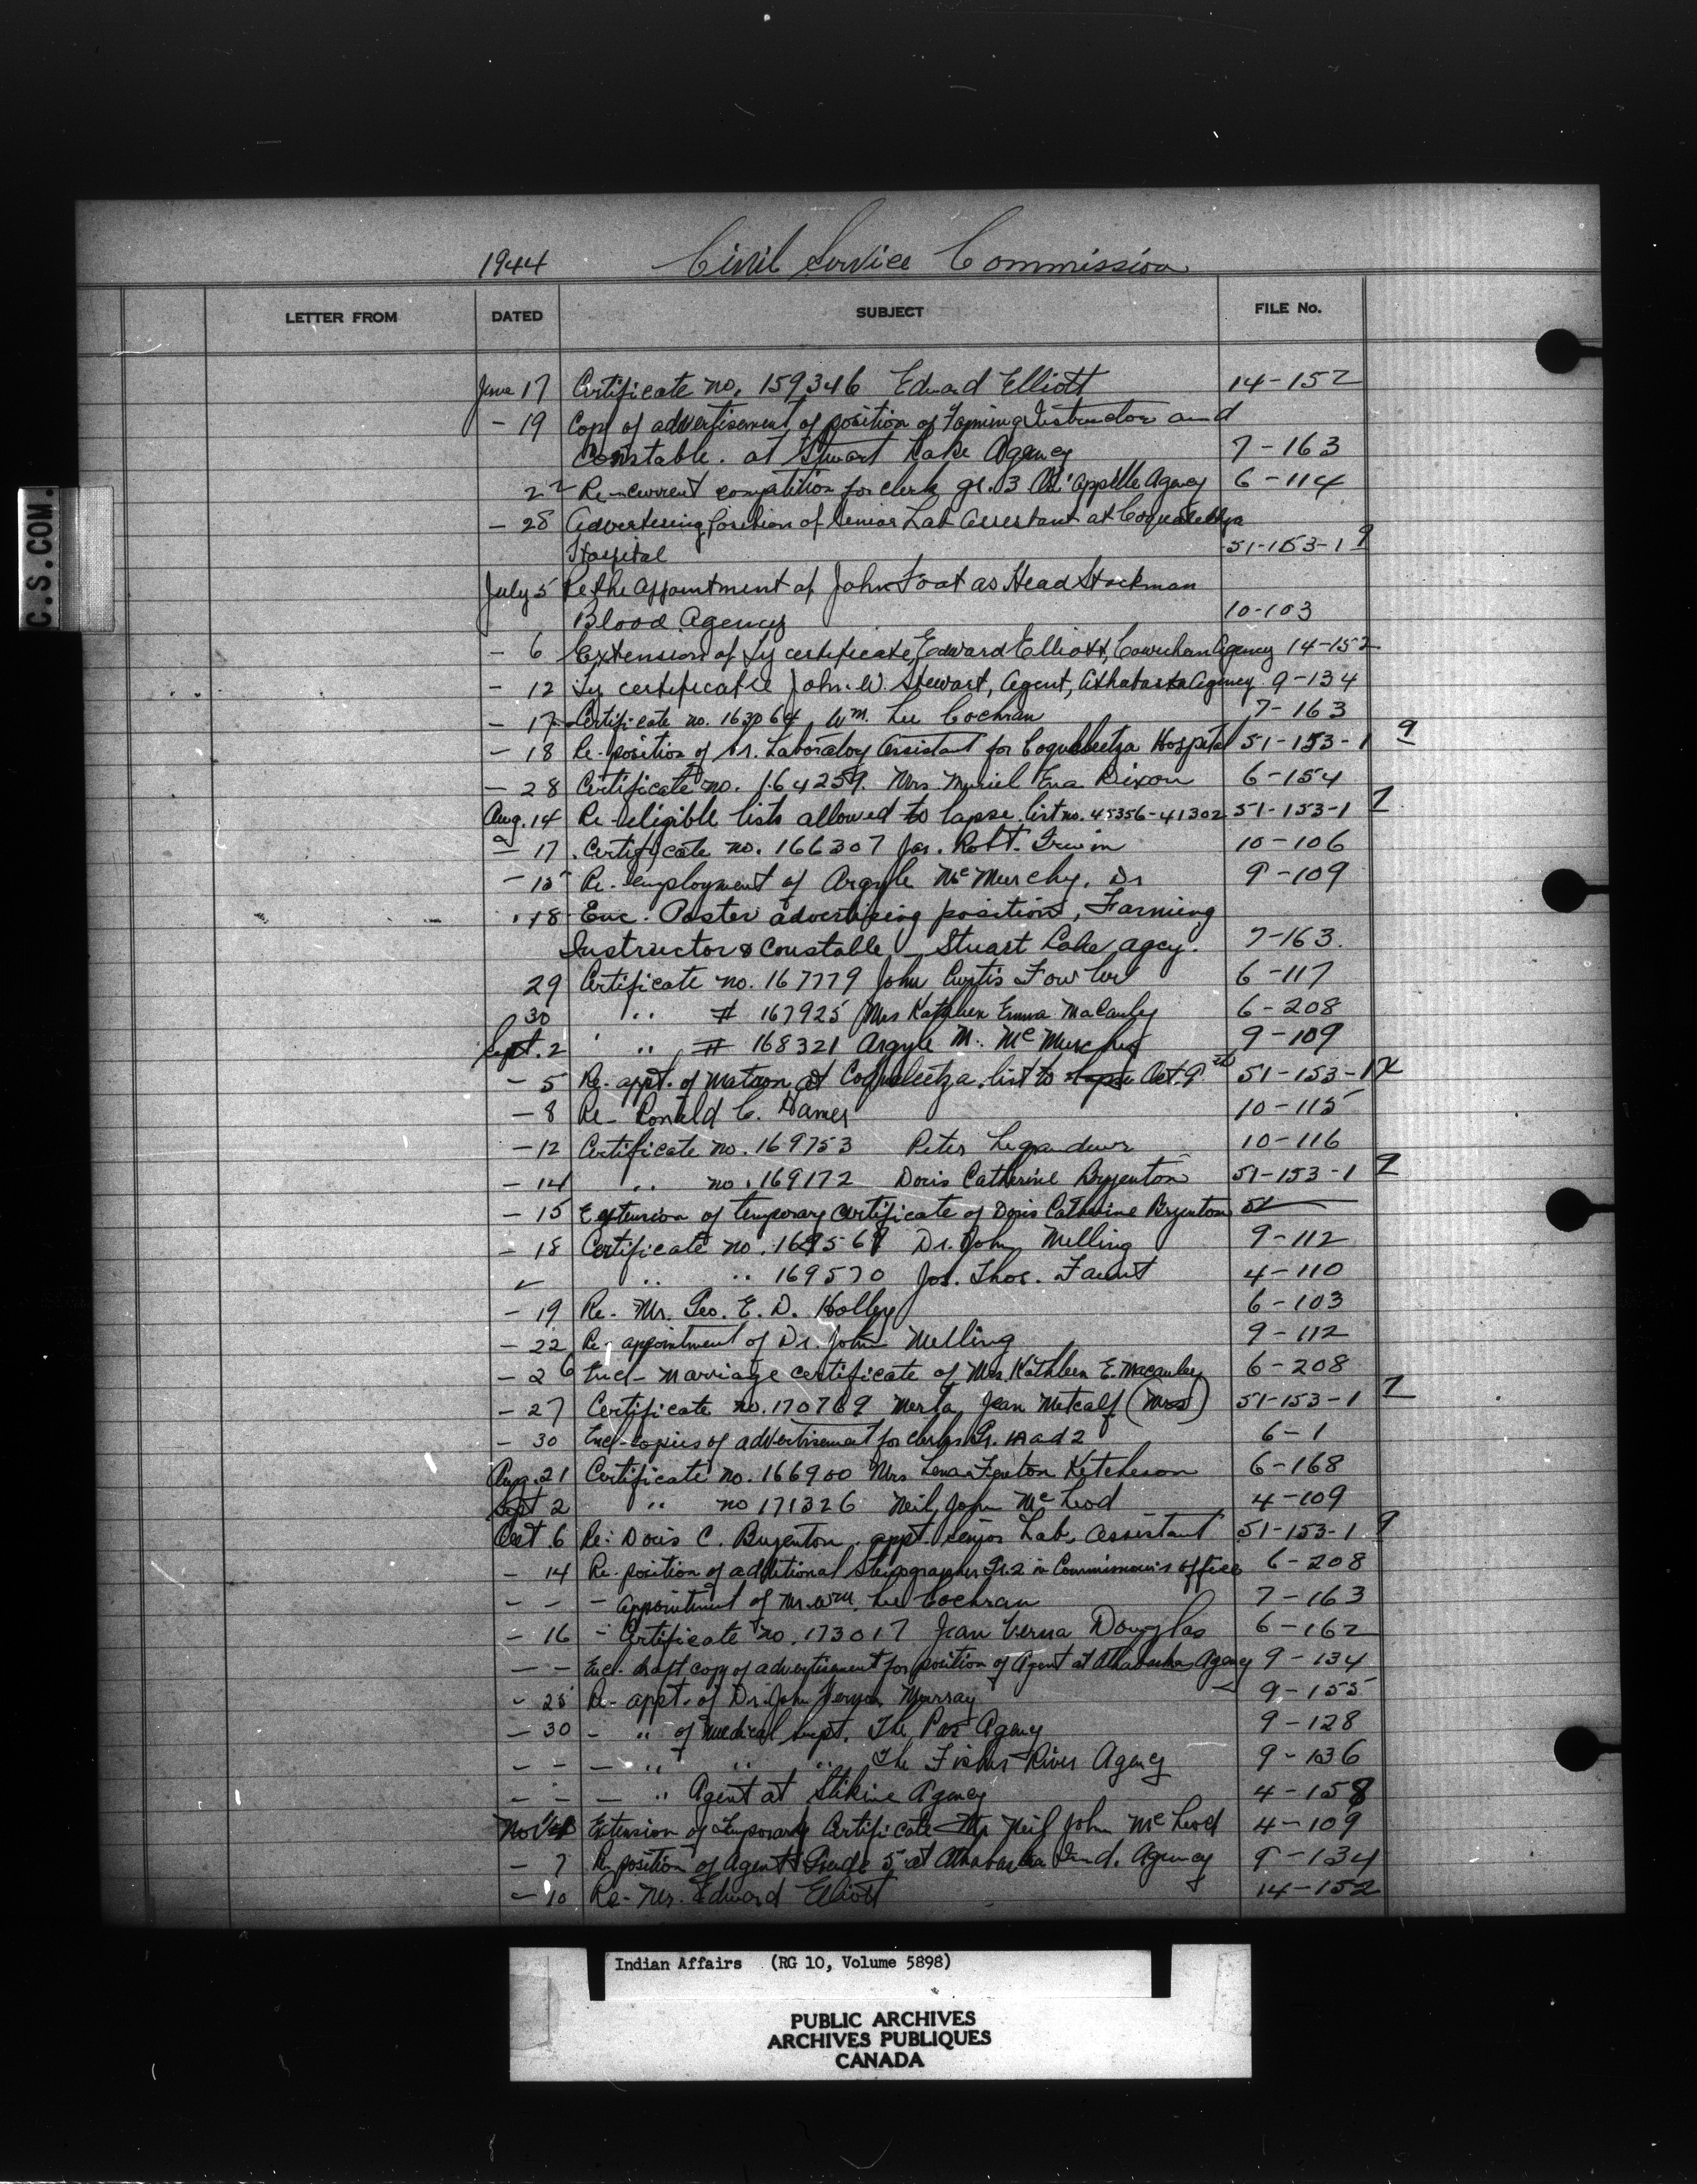 1944 Civil Service Commission
LETTER FROM DATED SUBJECT FILE No.
C.S.COM.
June 17 Certificate no. 159346 Edward Elliott 14-152
- 19 Copy of advertisement of position of Farming Instructor and
Constable. at Stuart Lake Agency 7-163
22 Re-current competition for clerk gr. 3 Qu'Appelle Agency 6-114
- 28 Advertising position of Senior Lab Assistant at Coqualeetza
Hospital 51-153-1 9
July 5 Re the Appointment of John Foat as Head Stockman
Blood Agency 10-103
- 6 Extension of Ty certificate, Edward Elliott, Cowichan Agency 14-152
- 12 Ty certificate John. W. Stewart, Agent, Athabaska Agency 9-134
- 17 Certificate no. 163064, Wm. Lee Cochran 7-163
- 18 Re-position of Sr. Laboratory Assistant for Coqualeetza Hospital 51-153-1 9
- 28 Certificate no. 164259. Mrs. Muriel Ena Dixon 6-154
Aug. 14 Re-eligible lists allowed to lapse. list no. 45356-41302 51-153-1
- 17 Certificate no. 166307 Jas. Robt. Irwin 10-106
- 15 Re. employment of Argyle McMurchy, Dr 9-109
18 Enc. Poster advertising position, Farming
Instructor & Constable - Stuart Lake agcy. 7-163.
29 Certificate no. 167779 John Curtis Fowler 6-117
30 " # 167925 Mrs Kathleen Emma Macauley 6-208
Sept. 2 " " # 168321 Argyle M. McMurchy 9-109
- 5 Re-appt. of Matron at Coqualeetza. list to lapse Oct. 9 51-153-1
- 8 Re- Ronald C. Hames 10-115
- 12 Certificate no. 169753 Peter 10-116
- 14 " no. 169172 Doris Catherine Bryenton 51-153-1
- 15 Extension of temporary certificate of Doris Catherine Bryenton
- 18 Certificate no. Dr. John Melling 9-112
" " 169570 Jos. Thos. Faunt 4-110
- 19 Re- Mr. Geo. E. D. Holley 6-103
- 22 Re-appointment of Dr. John Melling 9-112
- 26 Encl- marriage certificate of Mrs. Kathleen E. Macauley 6-208
- 27 Certificate no. 170769 Merla Jean Metcalf (Mrs) 51-153-1
- 30 Encl-copies of advertisement for clerks Gr. 1A and 2 6-1
Aug. 21 Certificate no. 166900 Mrs Lena Fenton Ketcheson 6-168
Sept 2 " no 171326 Neil John McLeod 4-109
Oct 6 Re: Doris C. Bryenton. appt. Senior Lab. Assistant 51-153-1 9
- 14 Re. position of additional Stenographer Gr. 2 in Commissioner's office 6-208
- - - Appointment of Mr. Wm. Lee Cochran 7-163
- 16 - Certificate no. 173017 Jean Verna Douglas 6-162
- - Enc- draft copy of advertisement for position of Agent at Athabaska Agency 9-134
- 28 Re- appt. of Dr. John Vernon Murray 9-155
- 30 - " of medical supt. The Pas Agency 9-128
- - - " " " The Fisher River Agency 9-136
- - - " Agent at Stikine Agency 4-158
Nov Extension of Temporary Certificate Mr Neil John McLeod 4-109
- 7 Re position of Agent Grade 5 at Athabaska Ind. Agency 9-134
- 10 Re- Mr. Edward Elliott 14-152
Indian Affairs (RG 10, Volume 5898)
PUBLIC ARCHIVES
ARCHIVES PUBLIQUES
CANADA